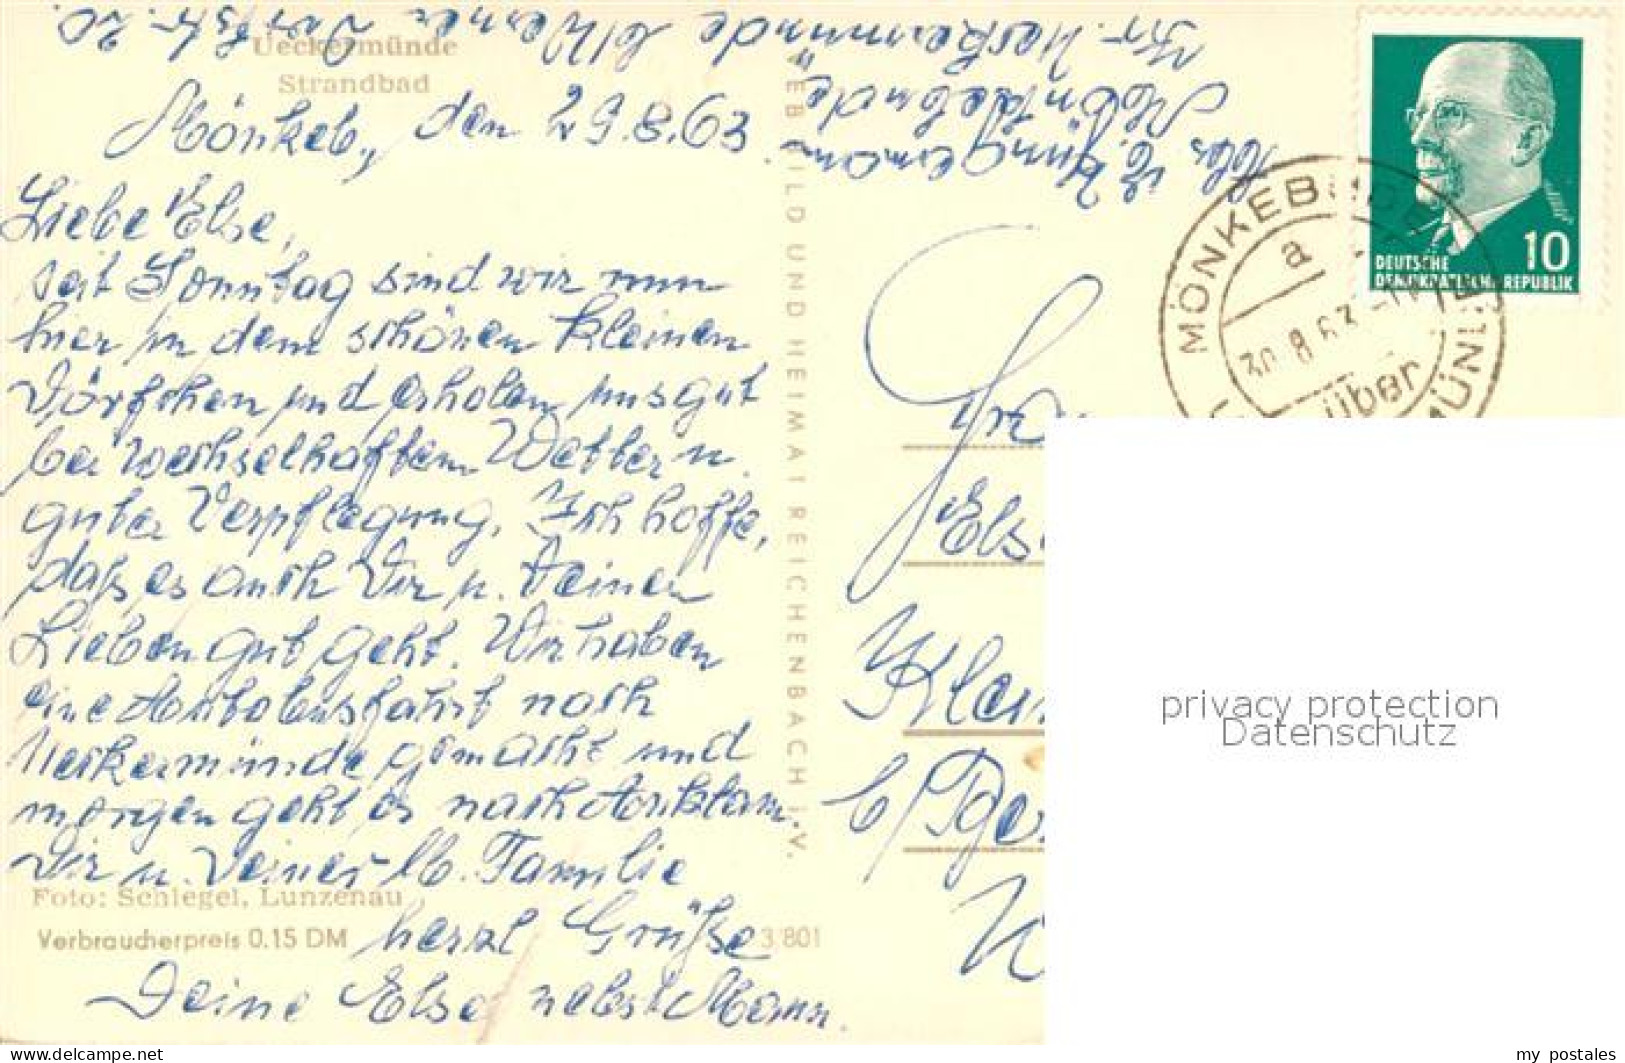 Ueckermünde
Strandbad
Mönkeb., den 29.8.63
Liebe Else,
seit Sonntag sind wir nun
hier in dem schönen kleinen
Dörfchen und erholen uns gut
bei wechselhaftem Wetter u.
guter Verpflegung. Ich hoffe,
daß es auch Dir u. Deinen
Lieben gut geht. Wir haben
eine Autobusfahrt nach
Ueckermünde gemacht und
morgen geht es nach Anklam.
Dir u. Deiner lb. Familie
herzl Grüße
Deine Else nebst Mann.
Foto: Schlegel, Lunzenau
Verbraucherpreis 0.15 DM
3/801
VEB BILD UND HEIMAT REICHENBACH i.V.
Abs.
Mönkebude
Kr. Ueckermünde b/Werner Dorfstr. 20
DEUTSCHE
DEMOKRATISCHE REPUBLIK
10
MÖNKEBUDE
a
30.8.63
über
Els
Klein
b/
privacy protection
Datenschutz
my postales
www.delcampe.net